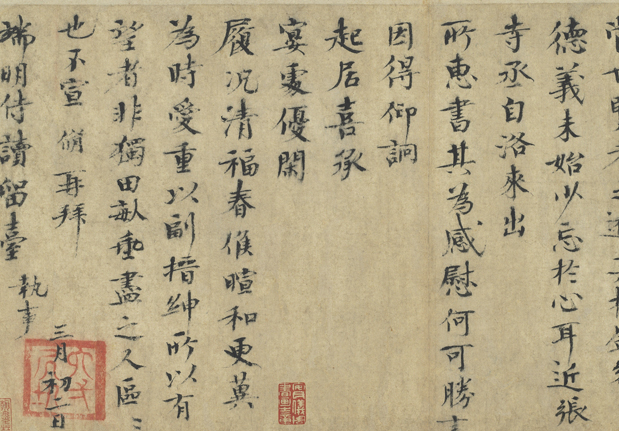 世賢者之遊其於
德義未始少忘於心耳近張
寺丞自洛來出
所惠書其為感慰何可勝言
因得仰詗
起居喜承
宴處優閑
履況清福春候暄和更冀
為時愛重以副搢紳所以有
望者非獨田畝垂盡之人區〻
也不宣 脩再拜
端明侍讀留臺執事
三月初二日